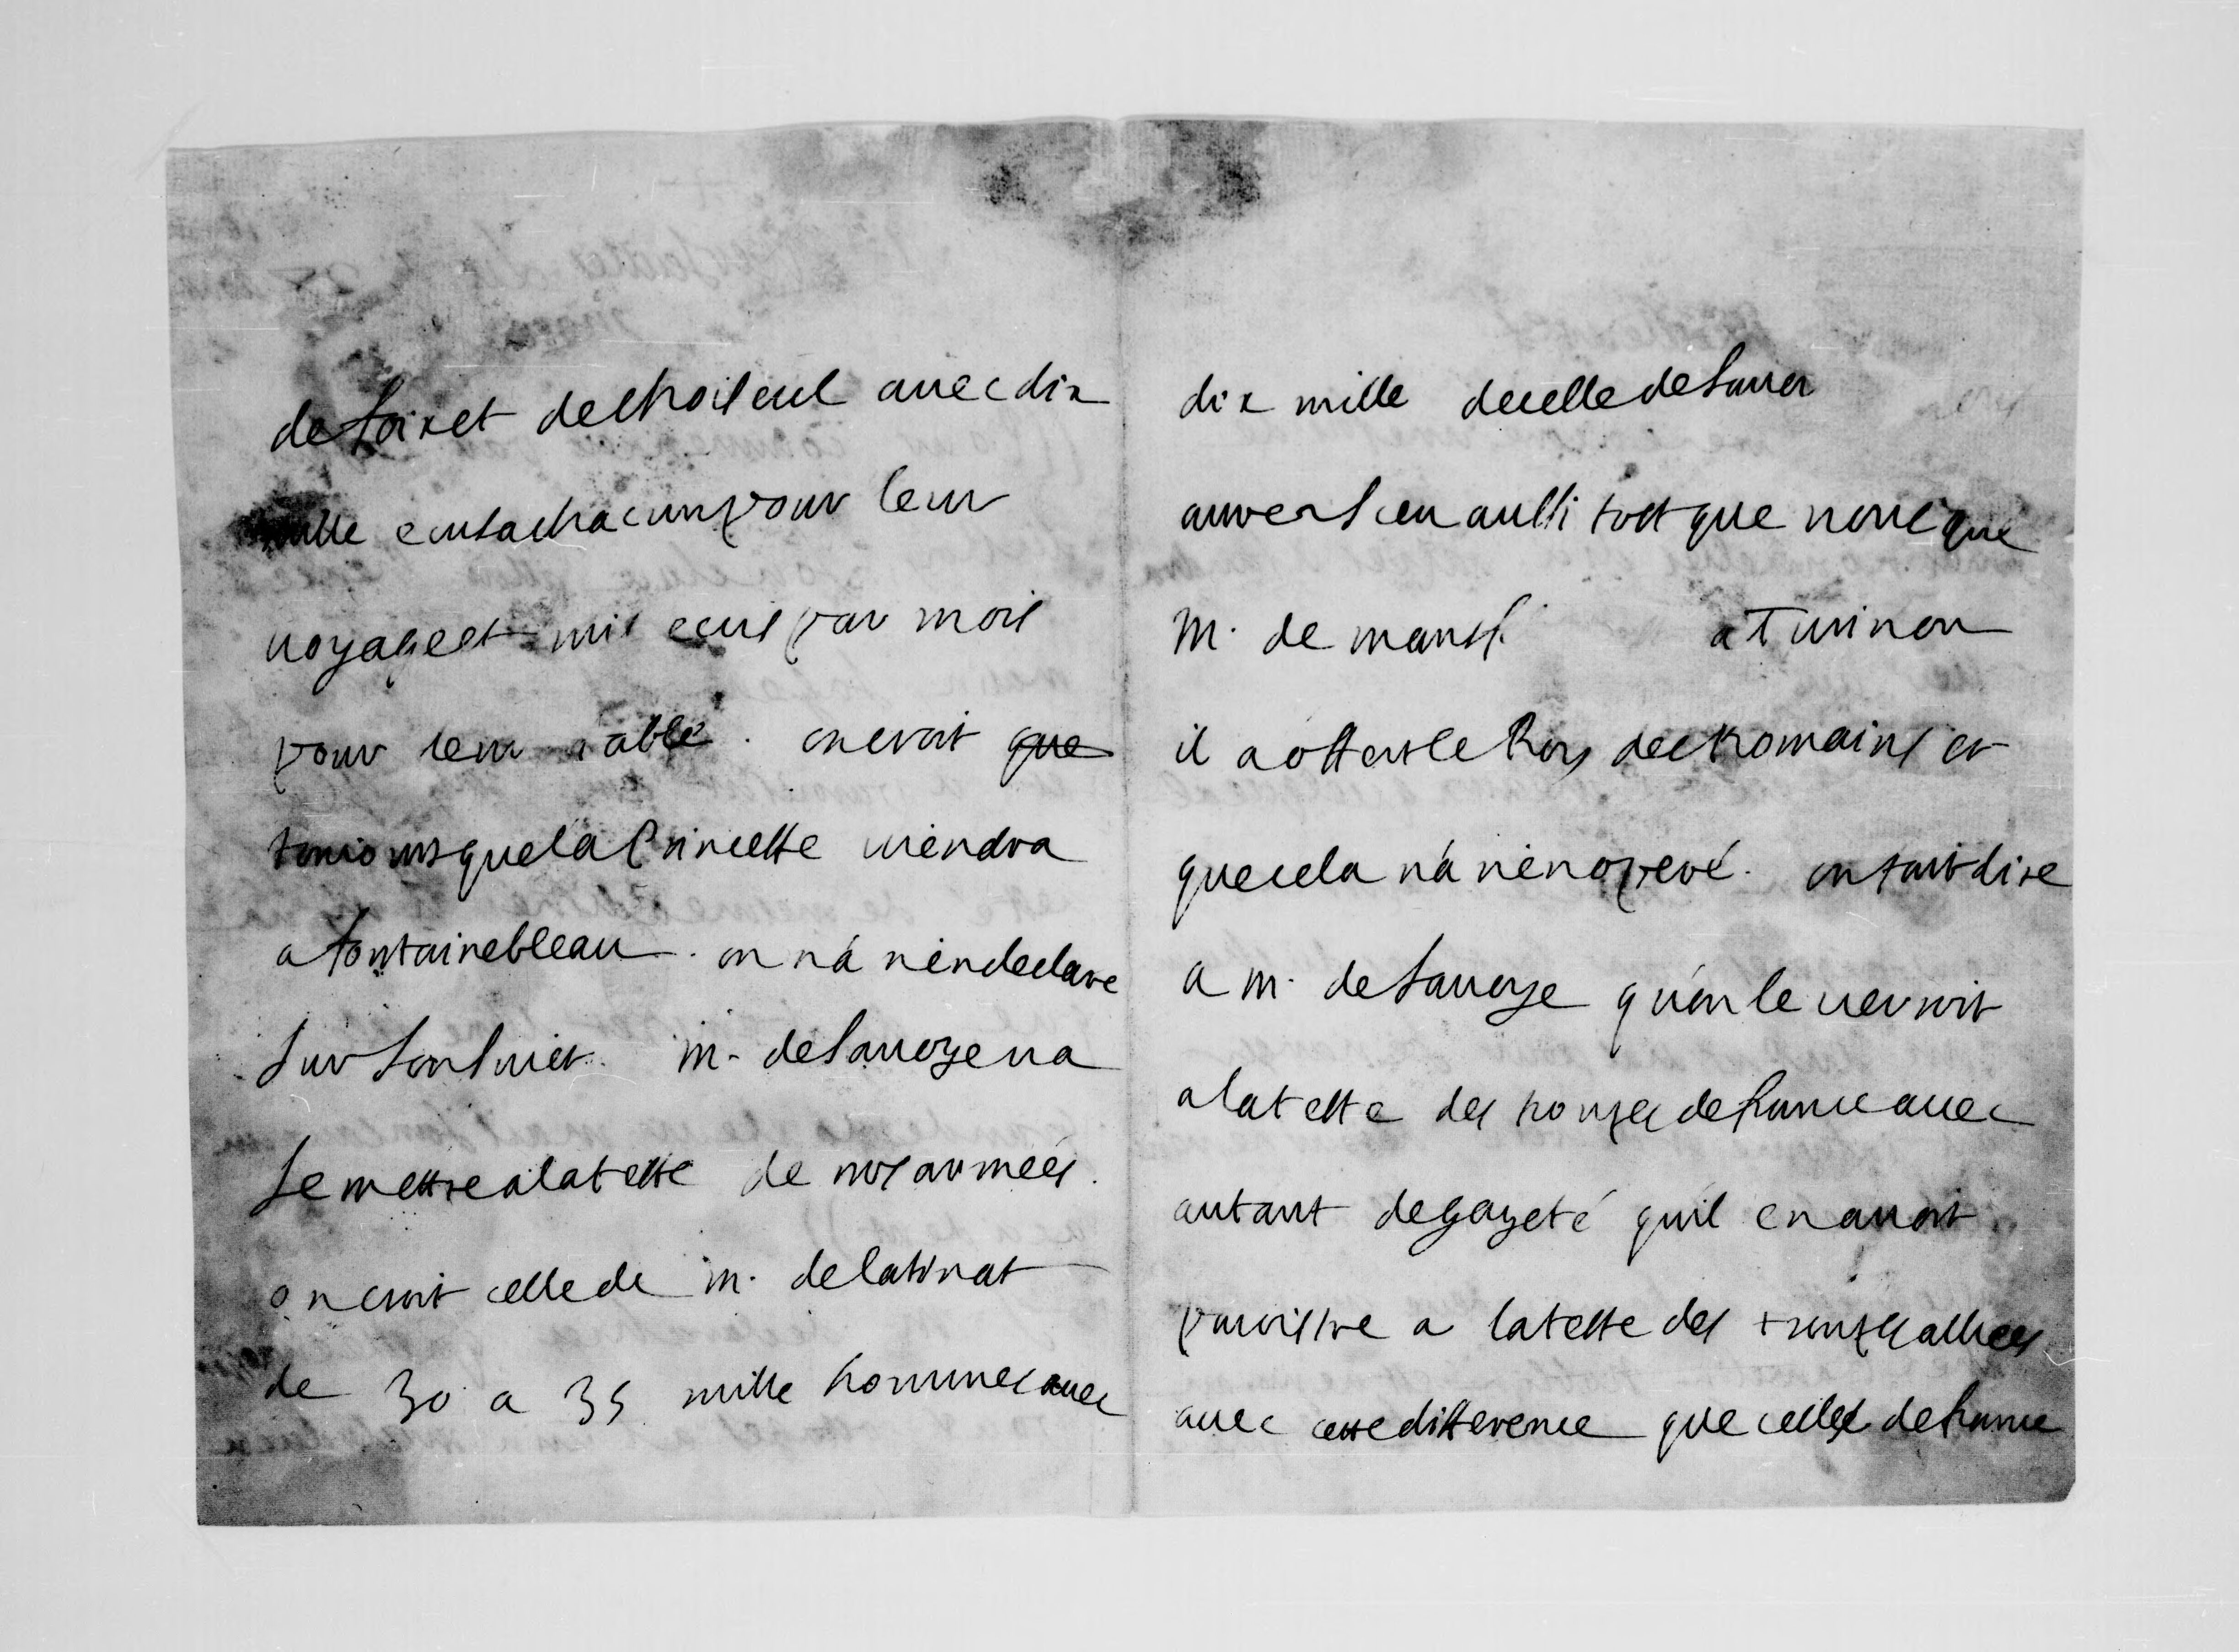 de foix et de choiseul avec dix
mille ecus a chacun pour leur
voyage et mil ecus par mois
pour leur table. on croit que
tousiours que la Princesse viendra
a fontainebleau. on n'a rien declare
sur son suiet. M. de Savoye va
se mettre a la teste de nos armées.
on croit celle de M. de Catinat
de 30 a 35 mille hommes avec
dix mille de celle de Savoy
on vera aussi tost que nous que
M. de mansf. a Turin ou
il a offert le Roy des Romains et
que cela n'a rien operé. on fait dire
a M. de Savoye qu'on le verroit
a la teste des troupes de france avec
autant de gayeté qu'il en avoit
paroistre a la teste des troupes alliees
avec cette difference que celles de france